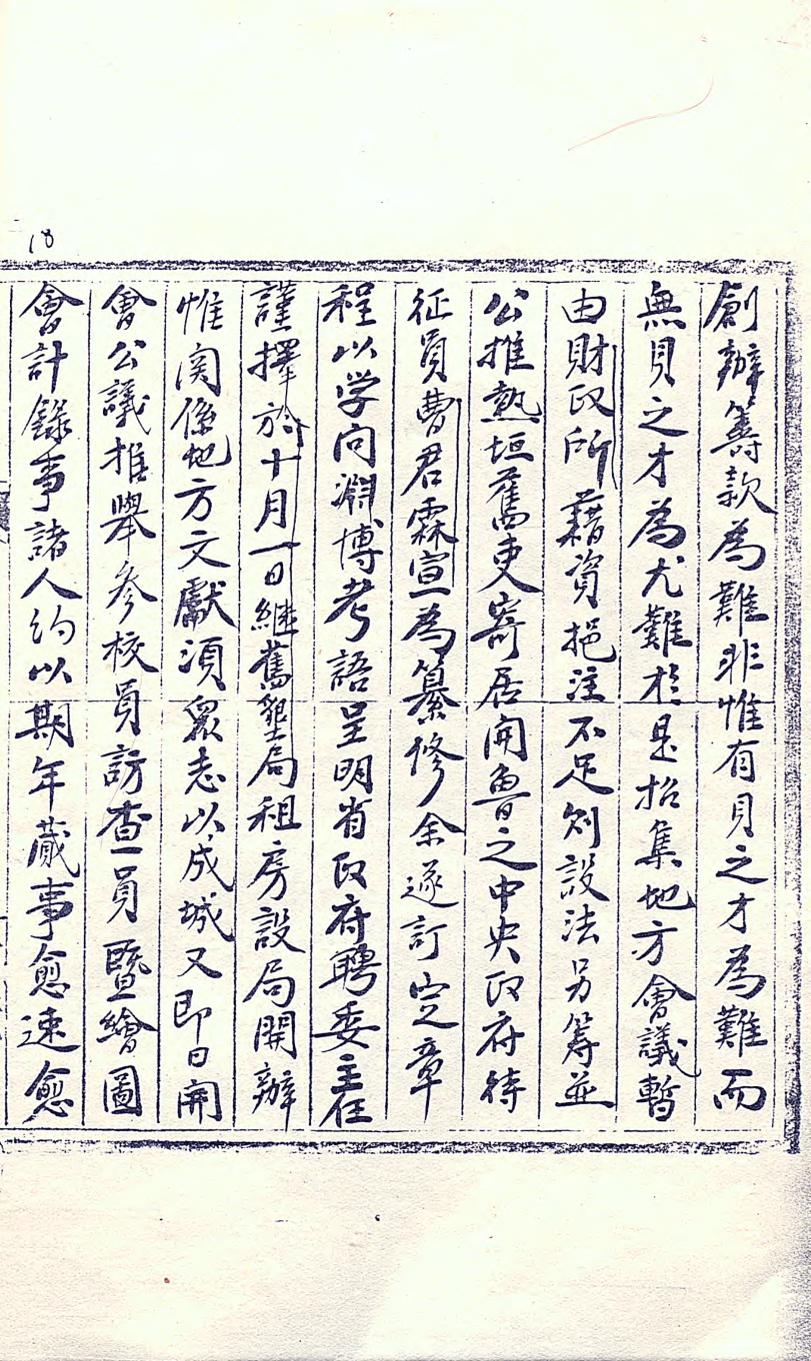 18
創辦籌款為難非惟有貝之才為難而
無貝之才為尤難於是招集地方會議暫
由財政所藉資挹注不足則設法另籌並
公推熱垣舊吏寄居開魯之中央政府待
征員曹君霖宣為纂修余遂訂定章
程以学问淵博考語呈明省政府聘委主任
謹擇於十月一日継舊墾局租房設局開辦
惟関係地方文獻須眾志以成城又即日開
會公議推舉参校員訪查員暨繪圖
會計錄事諸人約以期年蕆事愈速愈